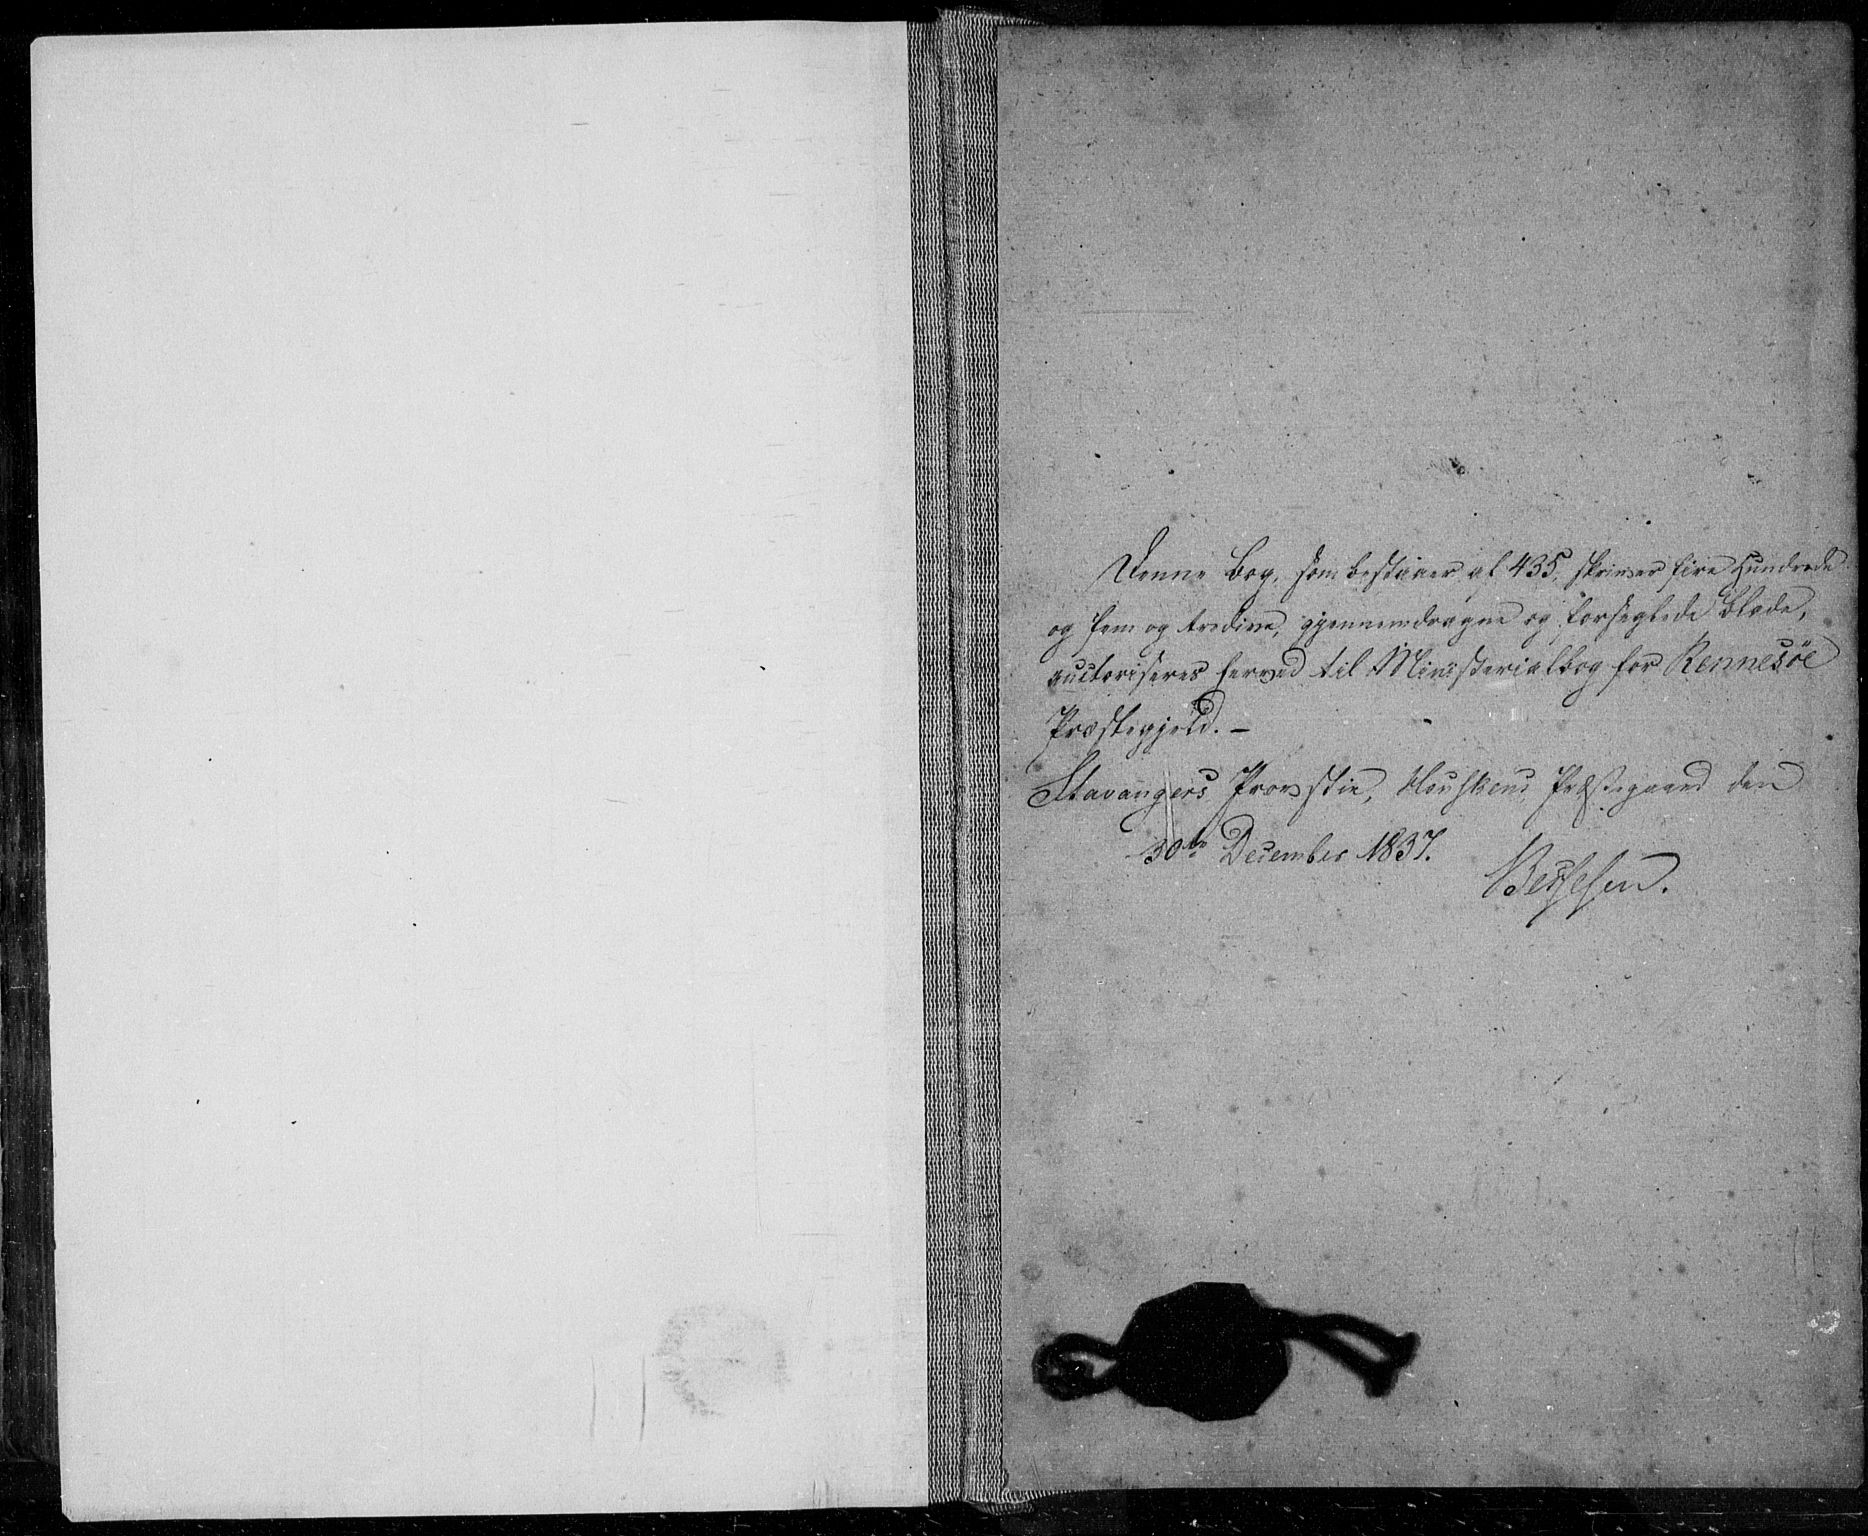 Denne Bog, som bestaaer af 435, skriver fire Hundrede
og fem og tredive, gjennemdragne og forseglede Blade,
auctoriseres herved til Ministerialbog for Rennesøe
Præstegjeld. –
Stavangers Provstie, Præstegaard den
30te December 1837.